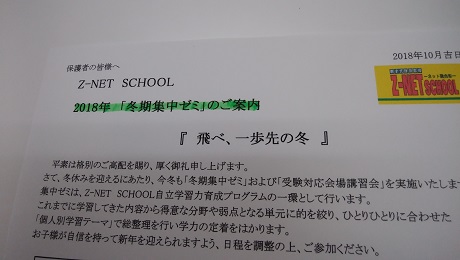 2018年10月吉日
保護者の皆様へ
Z-NET SCHOOL
Z-NET SCHOOL
2018年 「冬期集中ゼミ」のご案内
『 飛べ、一歩先の冬 』
平素は格別のご高配を賜り、厚く御礼申し上げます。
さて、冬休みを迎えるにあたり、今冬も「冬期集中ゼミ」および「受験対応会場講習会」を実施いたしま
集中ゼミは、Z-NET SCHOOL自立学習力育成プログラムの一環として行います。
これまでに学習してきた内容から得意な分野や弱点となる単元に的を絞り、ひとりひとりに合わせた
「個人別学習テーマ」で総整理を行い学力の定着をはかります。
お子様が自信を持って新年を迎えられますよう、日程を調整の上、ご参加ください。